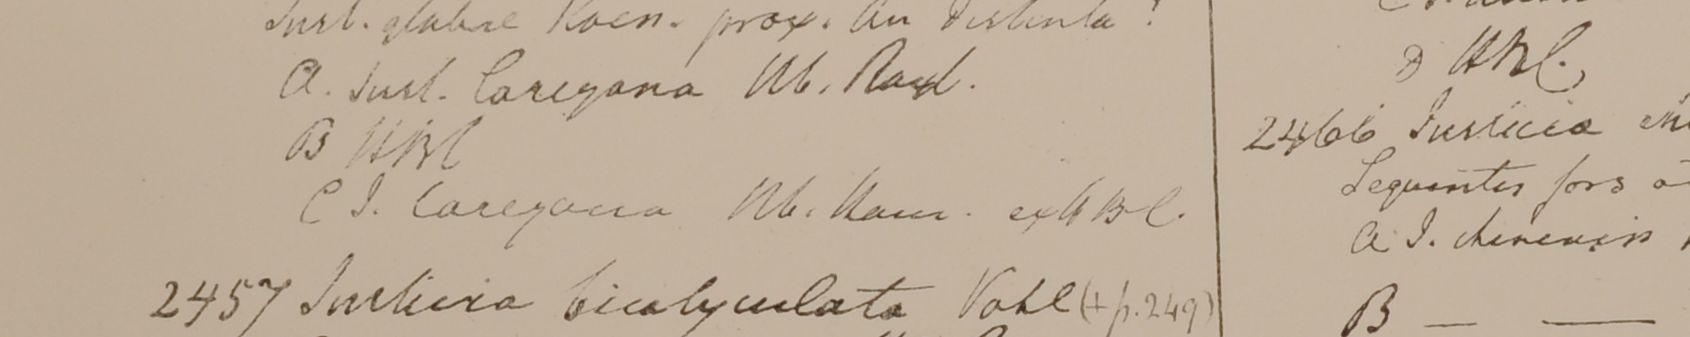 Just. glabre Koen. prox. an distincta?
A. Just. Caregana Hb. Roxb.
B HBC
C J. Caregana Hb. Ham. ex HBC.
2457 Justicia bicalyculata Vahl (+ p. 249)
D HBC.
2466 Justicia
Sequentis fors
A J. chinensis
B — —